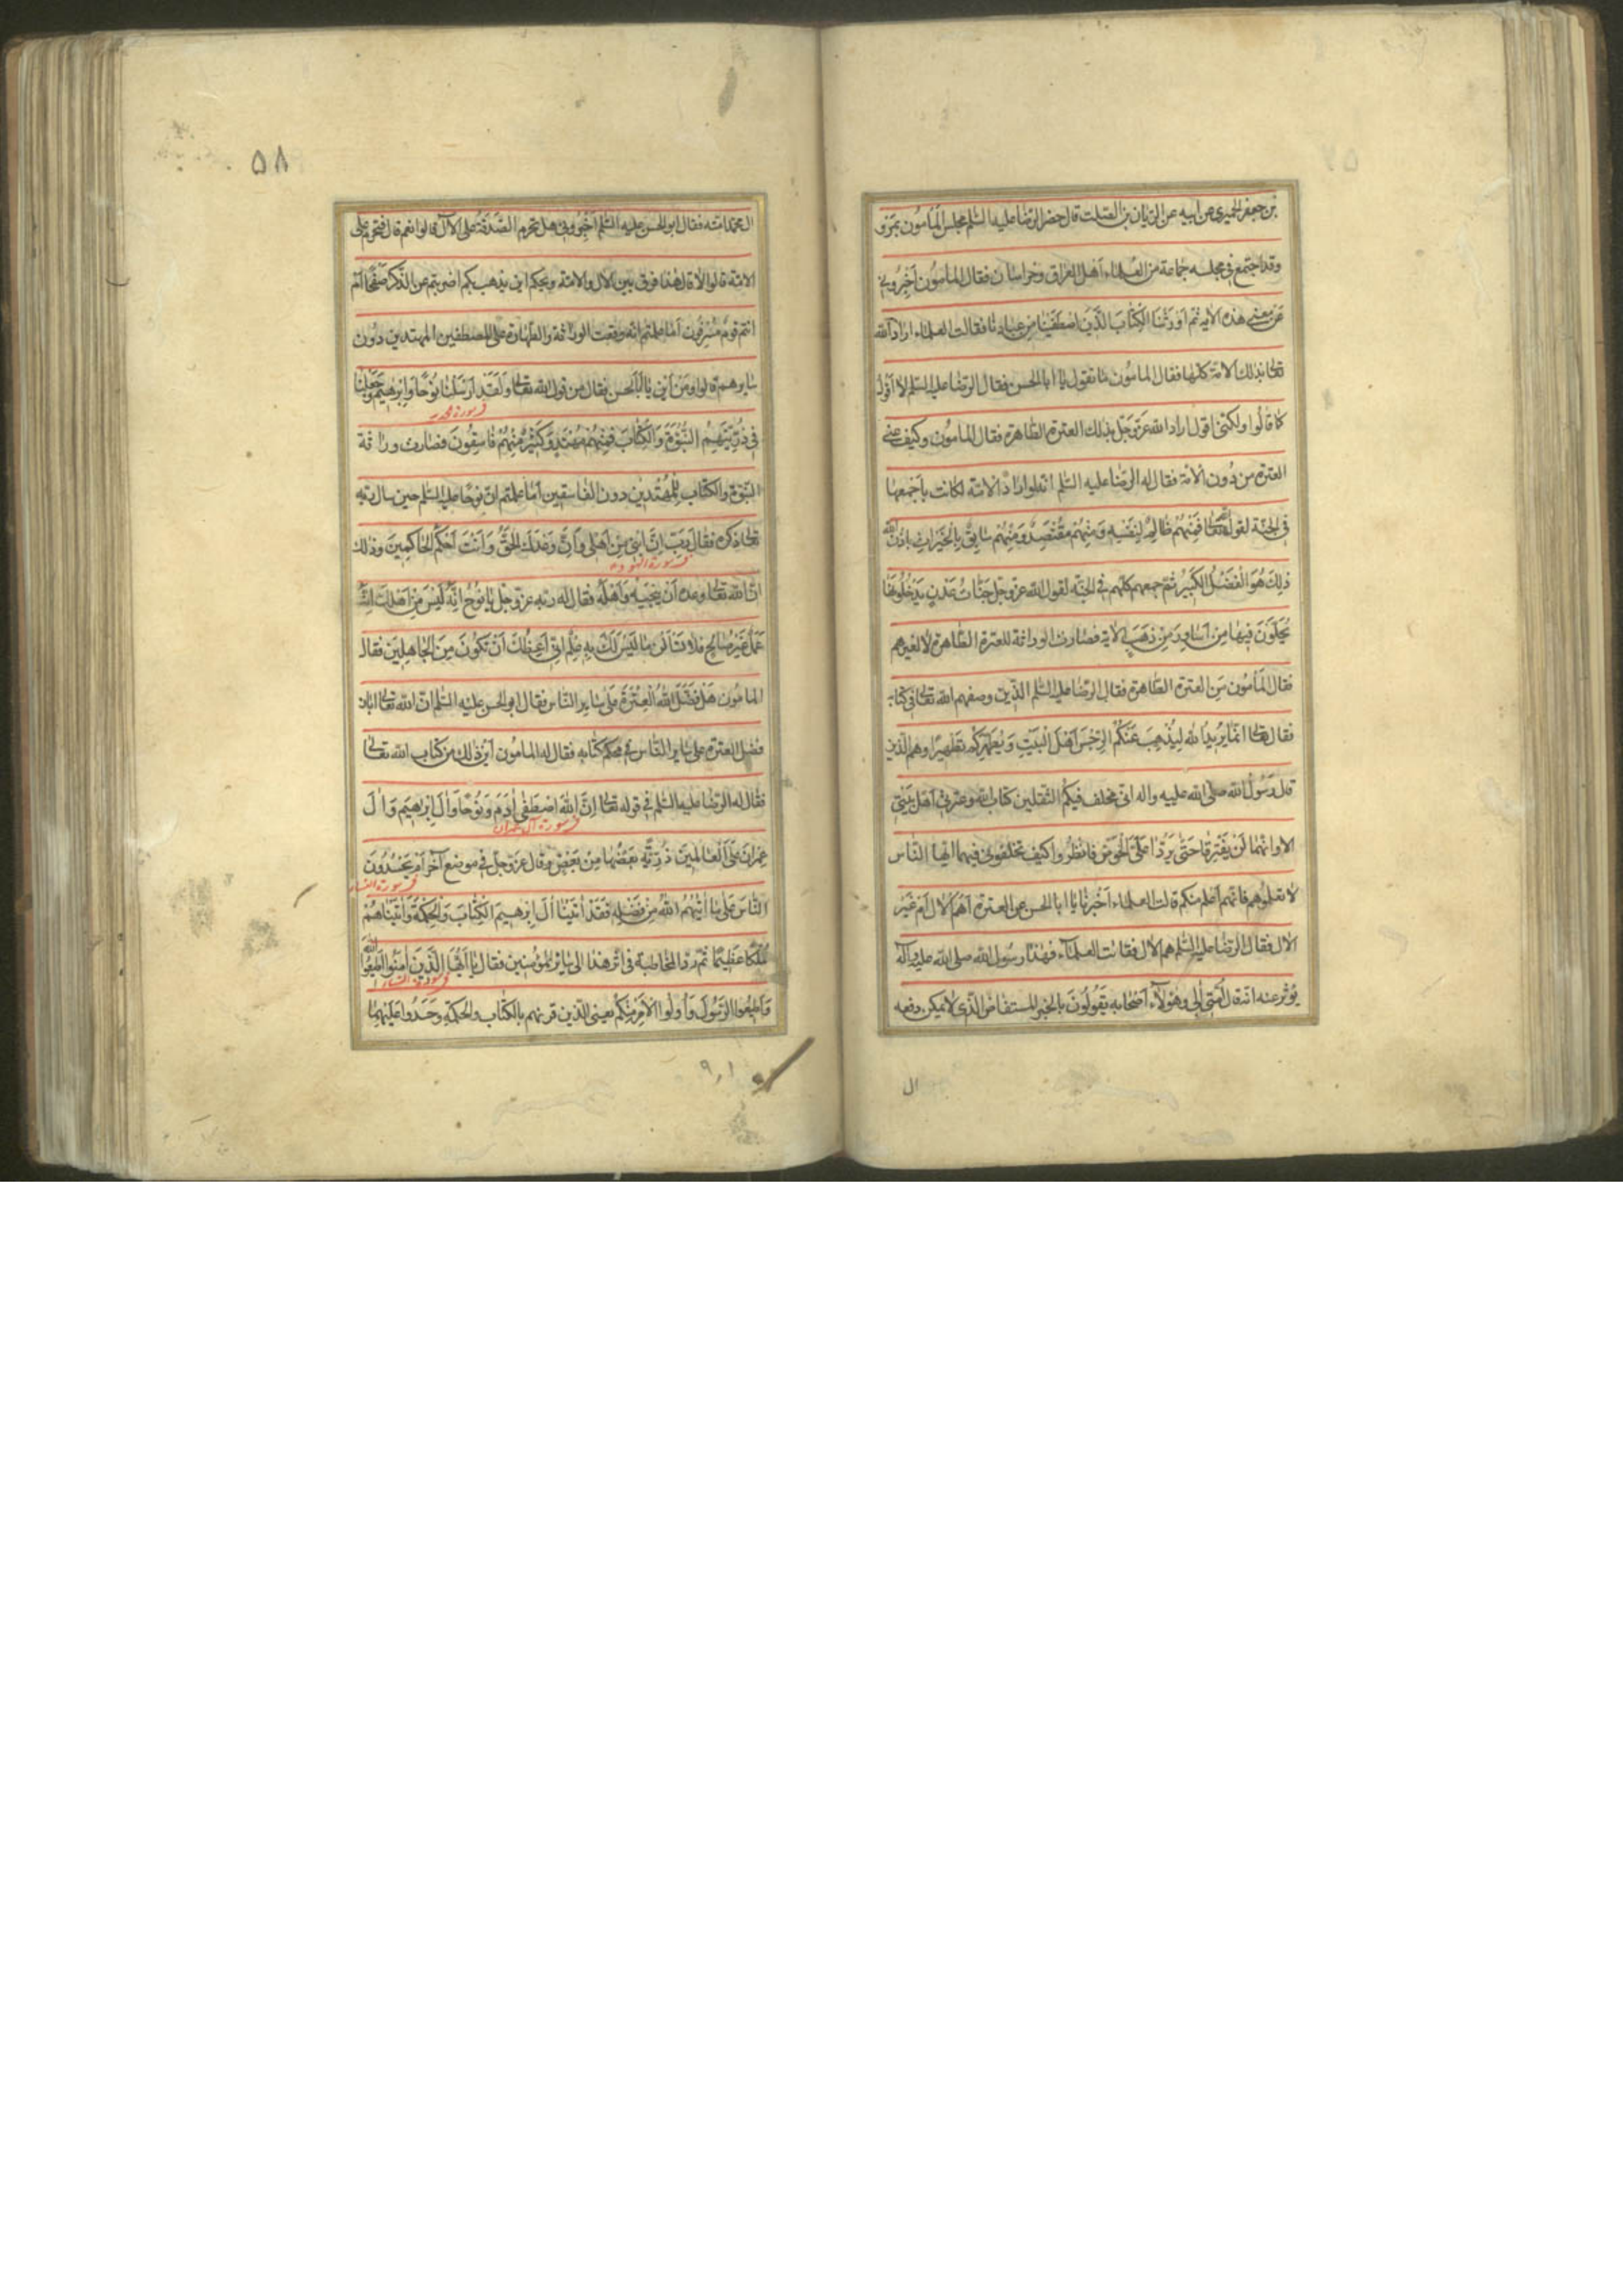 بن جعفر الحميري عن ابيه عن الريان بن الصلت قال حضر الرضا عليه السلم مجلس المأمون بمرو
وقد اجتمع في مجلسه جماعة من العلماء اهل العراق وخراسان فقال المأمون اخبروني
عن معنى هذه الاية ثم اورثنا الكتاب الذين اصطفينا من عبادنا فقالت العلماء اراد الله
تعالى بذلك الامة كلها فقال المامون ما تقول يا ابا الحسن فقال الرضا عليه السلم لا اقول
كما قالوا ولكني اقول اراد الله عز وجل بذلك العترة الطاهرة فقال المامون وكيف عنى
العترة من دون الامة فقال له الرضا عليه السلم انه لو اراد الامة لكانت باجمعها
في الجنة لقول الله تعالى فمنهم ظالم لنفسه ومنهم مقتصد ومنهم سابق بالخيرات باذن الله
ذلك هو الفضل الكبير ثم جمعهم كلهم في الجنة لقول الله عز وجل جنات عدن يدخلونها
يحلون فيها من اساور من ذهب الاية فصارت الوراثة للعترة الطاهرة لا لغيرهم
فقال المأمون من العترة الطاهرة فقال الرضا عليه السلم الذين وصفهم الله تعالى في كتابه
فقال تعالى انما يريد الله ليذهب عنكم الرجس اهل البيت ويطهركم تطهيرا وهم الذين
قال رسول الله صلى الله عليه واله اني مخلف فيكم الثقلين كتاب الله وعترتي اهل بيتي
الا وانهما لن يفترقا حتى يردا على الحوض فانظروا كيف تخلفوني فيهما ايها الناس
لا تعلموهم فانهم اعلم منكم قالت العلماء اخبرنا يا ابا الحسن عن العترة اهم الال ام غير
الال فقال الرضا عليه السلم هم الال فقالت العلماء فهذا رسول الله صلى الله عليه واله
يؤثر عنه انه قال امتي الي وهؤلاء اصحابه يقولون بالخبر المستفاض الذي لا يمكن دفعه
ال
۵۸
ال محمد امته فقال ابو الحسن عليه السلم اخبروني هل تحرم الصدقة على الال قالوا نعم قال فتحرم على
الامة قالوا لا قال هذا فرق بين الال والامة ويحكم اين يذهب بكم اضربتم عن الذكر صفحا ام
انتم قوم مسرفون اما علمتم انه وقعت الوراثة والطهارة على المصطفين المهتدين دون
سايرهم قالوا ومن اين يا ابا الحسن فقال من قول الله تعالى ولقد ارسلنا نوحا وابرهيم وجعلنا
في سورة الحديد
في ذريتهم النبوة والكتاب فمنهم مهتد وكثير منهم فاسقون فصارت وراثة
النبوة والكتاب للمهتدين دون الفاسقين اما علمتم ان نوحا عليه السلم حين سال ربه
تعالى ذكره فقال رب ان ابني من اهلي وان وعدك الحق وانت احكم الحاكمين وذلك
في سورة الهود
ان الله تعالى وعده ان ينجيه واهله فقال له ربه عز وجل يا نوح انه ليس من اهلك انه
عمل غير صالح فلا تسألن ما ليس لك به علم اني اعظك ان تكون من الجاهلين فقال
المامون هل فضل الله العترة على ساير الناس فقال ابو الحسن عليه السلم ان الله تعالى ابان
فضل العترة على ساير الناس في محكم كتابه فقال له المامون اين ذلك من كتاب الله تعالى
فقال له الرضا عليه السلم في قوله تعالى ان الله اصطفى ادم ونوحا وال ابرهيم وال
في سورة آل عمران
عمران على العالمين ذرية بعضها من بعض وقال عز وجل في موضع آخر ام يحسدون
في سورة النساء
الناس على ما اتيهم الله من فضله فقد اتينا ال ابرهيم الكتاب والحكمة واتيناهم
ملكا عظيما ثم رد المخاطبة في اثر هذا الى سائر المؤمنين فقال يا ايها الذين امنوا اطيعوا الله
في سورة النساء
واطيعوا الرسول واولوا الامر منكم يعني الذين قرنهم بالكتاب والحكمة وحسدوا عليهما